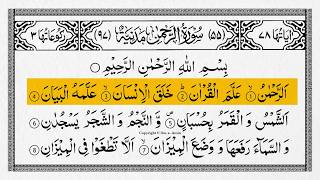 اٰیَاتُهَا ٧٨ (٥٥) سُوْرَةُ الرَّحْمٰنِ مَدَنِيَّةٌ (٩٧) رُكُوْعَاتُهَا ٣
بِسْمِ اللّٰهِ الرَّحْمٰنِ الرَّحِيْمِ ○
اَلرَّحْمٰنُ ① عَلَّمَ الْقُرْاٰنَ ② خَلَقَ الْاِنْسَانَ ③ عَلَّمَهُ الْبَيَانَ ④
اَلشَّمْسُ وَ الْقَمَرُ بِحُسْبَانٍ ⑤ وَّ النَّجْمُ وَ الشَّجَرُ يَسْجُدٰنِ ⑥
وَ السَّمَآءَ رَفَعَهَا وَ وَضَعَ الْمِيْزَانَ ⑦ اَلَّا تَطْغَوْا فِي الْمِيْزَانِ ⑧